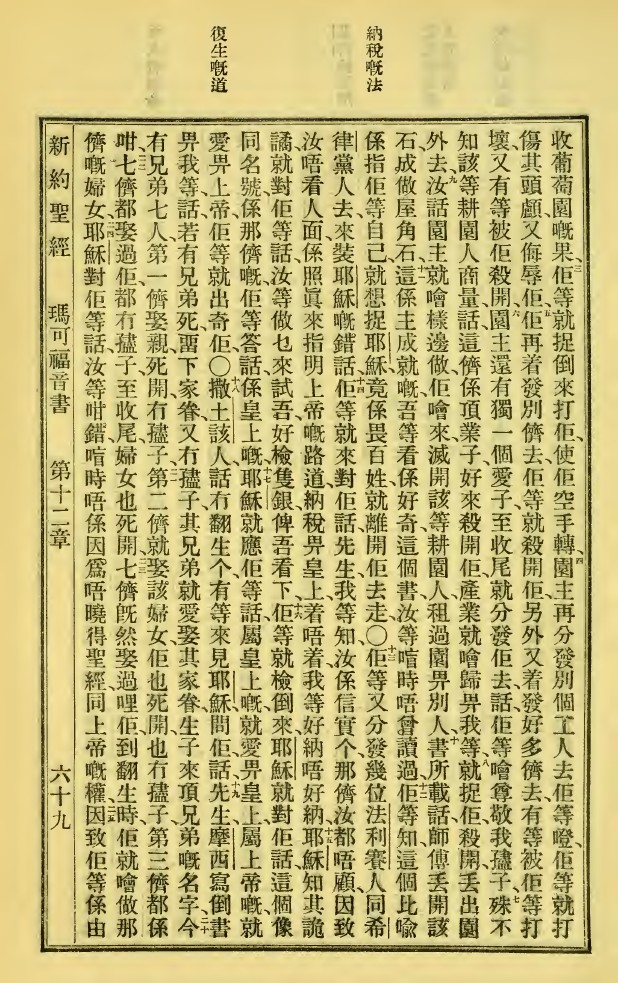 納稅嘅法
復生嘅道
收葡萄園嘅果佢等就捉倒來打佢使佢空手轉園主再分發別個工人去佢等噔佢等就打
傷其頭顱又侮辱佢佢再着發別儕去佢等就殺開佢另外又着發好多儕去有等被佢等打
壞又有等被佢殺開園主還有獨一個愛子至收尾就分發佢去話佢等噲尊敬我孻子殊不
知該等耕園人商量話這儕係頂業子好來殺開佢產業就噲歸畀我等就捉佢殺開丟出園
外去汝話園主就噲樣邊做佢噲來滅開該等耕園人租過園畀別人書所載話師傅丟開該
石成做屋角石這係主成就嘅吾等看係好奇這個書汝等喧時唔曾讀過佢等知這個比喻
係指佢等自己就想捉耶穌竟係畏百姓就離開佢去走〇佢等又分發幾位法利賽人同希
律黨人去來裝耶穌嘅錯話佢等就來對佢話先生我等知汝係信實个那儕汝都唔顧因致
汝唔看人面係照眞來指明上帝嘅路道納稅畀皇上着唔着我等好納唔好納耶穌知其詭
譎就對佢等話汝等做乜來試吾好檢隻銀俾吾看下佢等就檢倒來耶穌就對佢話這個像
同名號係那儕嘅佢等答話係皇上嘅耶穌就應佢等話屬皇上嘅就愛畀皇上屬上帝嘅就
愛畀上帝佢等就出奇佢〇撒土該人話冇翻生个有等來見耶穌問佢話先生摩西寫倒書
畀我等話若有兄弟死畱下家眷又冇孻子其兄弟就愛娶其家眷生子來頂兄弟嘅名字今
有兄弟七人第一儕娶親死開冇孻子第二儕就娶該婦女佢也死開也冇孻子第三儕都係
咁七儕都娶過佢都冇孻子至收尾婦女也死開七儕旣然娶過哩佢到翻生時佢就噲做那
儕嘅婦女耶穌對佢等話汝等咁錯喧時唔係因爲唔曉得聖經同上帝嘅權因致佢等係由
新約聖經 瑪可福音書 第十二章 六十九